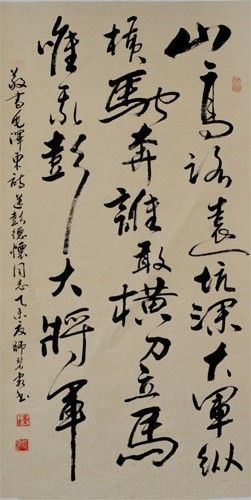 山高路遠坑深大軍縱
橫馳奔誰敢橫刀立馬
唯我彭大將軍
敬書毛澤東詩送彭德懷同志乙未夏師書